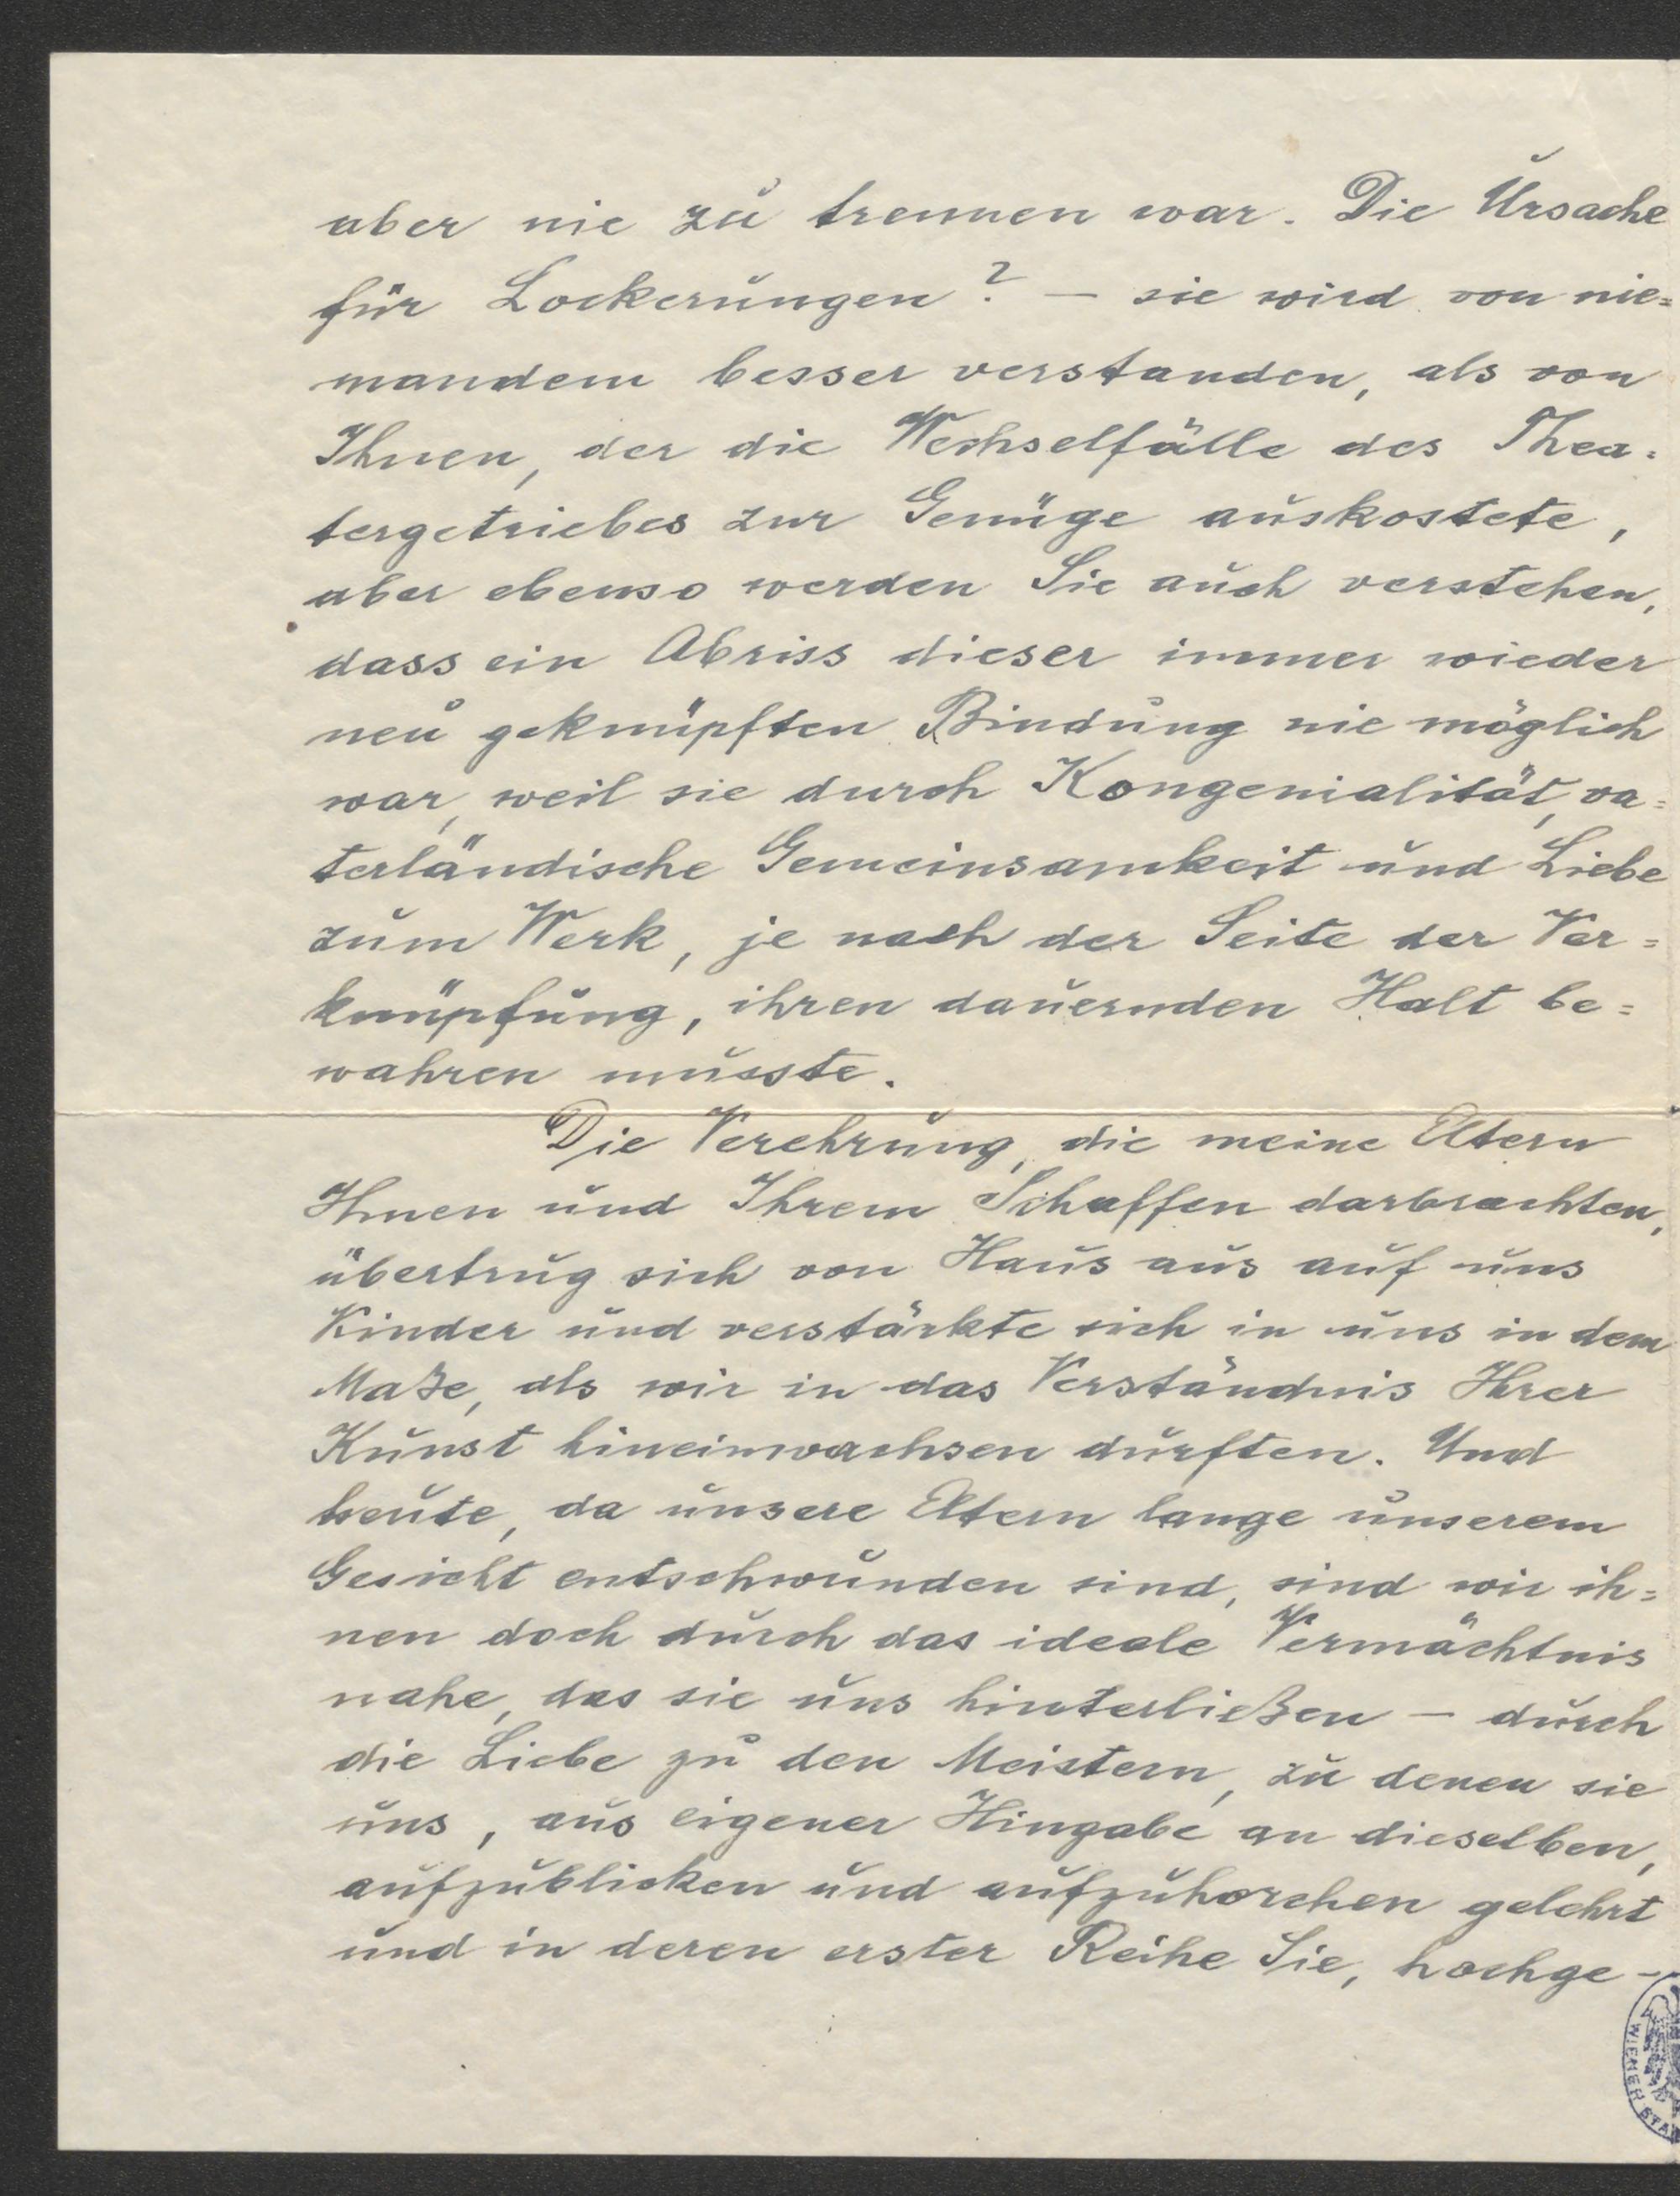 aber nie zu trennen war. Die Ursache
für Lockerungen? — sie wird von nie=
mandem besser verstanden, als von
Ihnen, der die Wechselfälle des Thea=
tergetriebes zur Genüge auskostete,
aber ebenso werden Sie auch verstehen,
dass ein Abriss dieser immer wieder
neu geknüpften Bindung nie möglich
war, weil sie durch Kongenialität, va=
terländische Gemeinsamkeit und Liebe
zum Werk, je nach der Seite der Ver=
knüpfung, ihren dauernden Halt be=
wahren musste.
Die Verehrung, die meine Eltern
Ihnen und Ihrem Schaffen darbrachten,
übertrug sich von Haus aus auf uns
Kinder und verstärkte sich in uns in dem
Maße, als wir in das Verständnis Ihrer
Kunst hineinwachsen durften. Und
heute, da unsere Eltern lange unserem
Gesicht entschwunden sind, sind wir ih=
nen doch durch das ideale Vermächtnis
nahe, das sie uns hinterließen — durch
die Liebe zu den Meistern, zu denen sie
uns, aus eigener Hingabe an dieselben,
aufzublicken und aufzuhorchen gelehrt
und in deren erster Reihe Sie, hochge-
WIENER STA